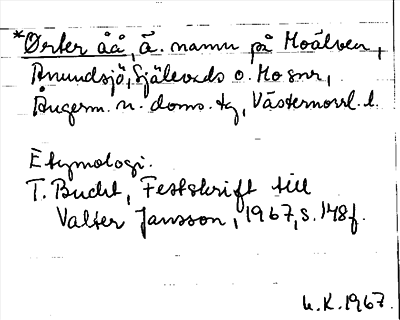 *Ørter åå, ä. namn på Moälven,
Anundsjö, Själevads o. Mo snr,
Ångerm. n. doms. tg, Västernorrl. l.
Etymologi.
T. Bucht, Festskrift till
Valter Jansson, 1967, s. 148 f.
h.K. 1967.